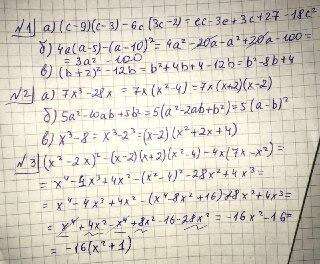 №1 а) (с-9)(с-3)-6с(3с-2) = сс-3с+3с+27-18с²
б) 4а(а-5)-(а-10)² = 4а²-20а-а²+20а-100 =
= 3а²-100
в) (b+2)²-12b = b²+4b+4-12b = b²-8b+4
№2 а) 7x³-28x = 7x(x²-4) = 7x(x+2)(x-2)
б) 5а²-10аb+5b² = 5(а²-2аb+b²) = 5(а-b)²
в) x³-8 = x³-2³ = (x-2)(x²+2x+4)
№3 (x²-2x)²-(x-2)(x+2)(x²-4)-4x(7x-x²) =
= x⁴-4x³+4x²-(x²-4)²-28x²+4x³ =
= x⁴-4x³+4x²-(x⁴-8x²+16)-28x²+4x³ =
= x⁴+4x²-x⁴+8x²-16-28x² = -16x²-16 =
= -16(x²+1)